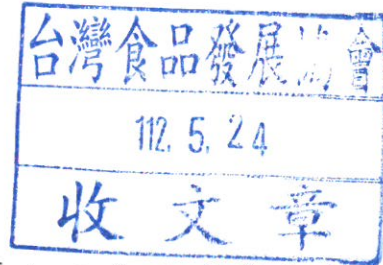 台灣食品發展協會
112. 5. 24
收文章